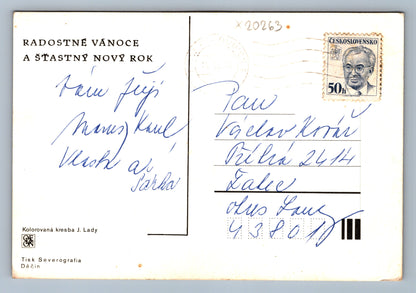 20263
ČESKOSLOVENSKO
50h
RADOSTNÉ VÁNOCE
A ŠŤASTNÝ NOVÝ ROK
Vám přejí
Karel
Vlasta a
Šárka
Pan
Václav Kovář
2414
Žatec
okres Louny
43801
Kolorovaná kresba J. Lady
Tisk Severografia
Děčín